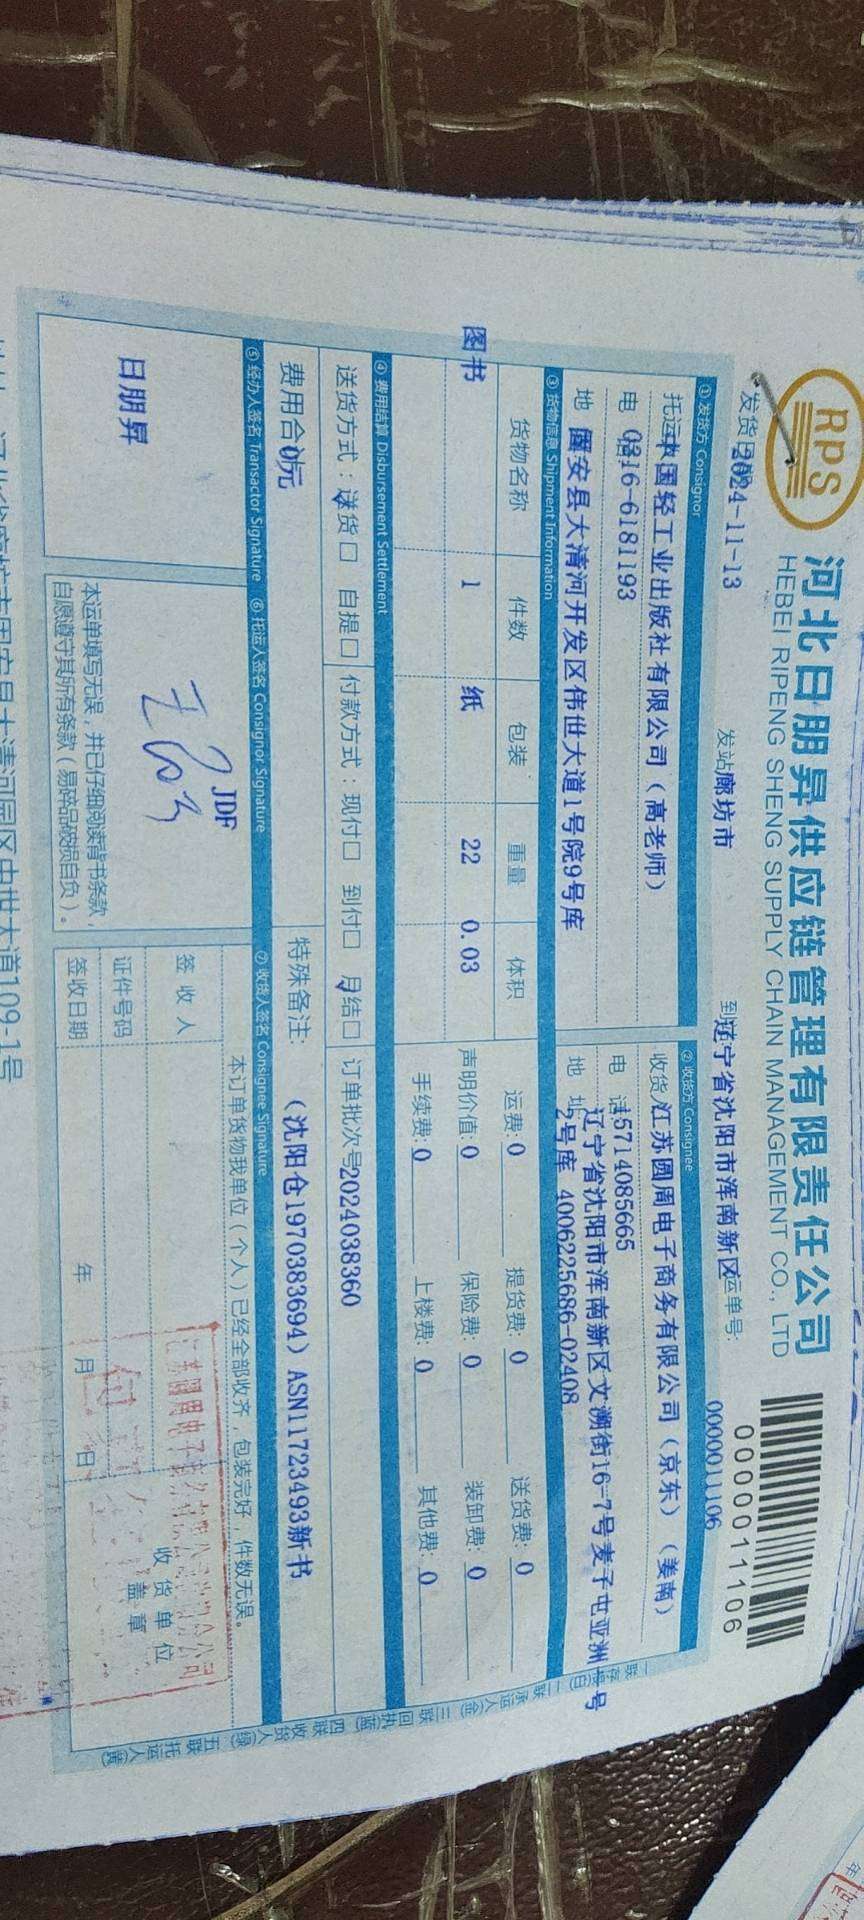 RPS
河北日朋昇供应链管理有限责任公司
HEBEI RIPENG SHENG SUPPLY CHAIN MANAGEMENT CO., LTD
0000011106
发货日期 2024-11-13 发站 廊坊市 到 辽宁省沈阳市浑南新区 运单号: 0000011106
① 发货方 Consignor
托运 中国轻工业出版社有限公司（高老师）
电 0316-6181193
地 固安县大清河开发区伟世大道1号院9号库
② 收货方 Consignee
收货 江苏圆周电子商务有限公司（京东）（姜南）
电 话 15714085665
地 址 辽宁省沈阳市浑南新区文溯街16-7号麦子屯亚洲一号
2号库 4006225686-02408
③ 货物信息 Shipment Information
货物名称 件数 包装 重量 体积
图书 1 纸 22 0.03
运费: 0 提货费: 0 送货费: 0
声明价值: 0 保险费: 0 装卸费: 0
手续费: 0 上楼费: 0 其他费: 0
④ 费用结算 Disbursement Settlement
送货方式：送货 自提 付款方式：现付 到付 月结 订单批次号 2024038360
费用合 0元
特殊备注: （沈阳仓1970383694）ASN11723493新书
⑤ 经办人签名 Transactor Signature
日朋昇
⑥ 托运人签名 Consignor Signature
JDF
本运单填写无误，并已仔细阅读背书条款，
自愿遵守其所有条款（易碎品破损自负）。
⑦ 收货人签名 Consignee Signature
本订单货物我单位（个人）已经全部收齐，包装完好，件数无误。
签收人
证件号码
签收日期 年 月 日
收货单位
盖章
一联存根(白) 二联承运人(金) 三联回执(蓝) 四联收货人(绿) 五联托运人(黄)